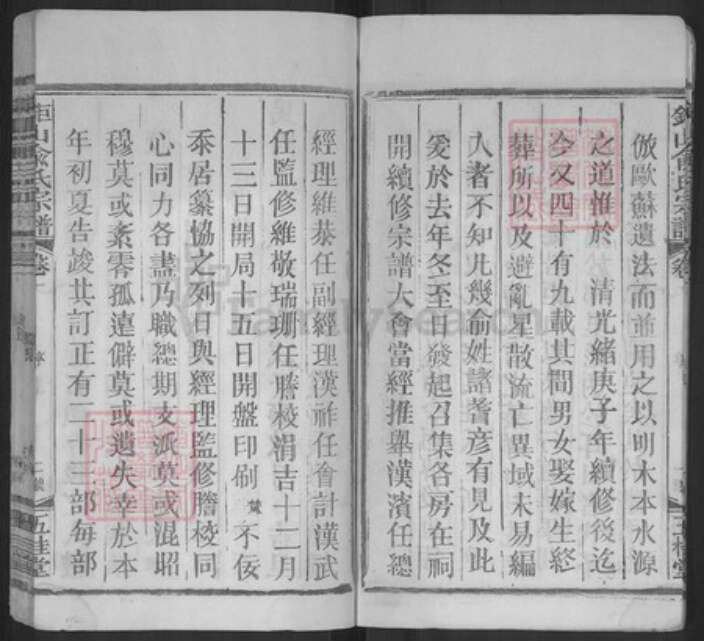 倣歐蘇遺法而並用之以明木本水源
之道惟於 清光緒庚子年續修後迄
今又四十有九載其間男女娶嫁生終
葬所以及避亂星散流亡異域未易編
入者不知凡幾俞姓諸耆彥有見及此
爰於去年冬至日發起召集各房在祠
開續修宗譜大會當經推舉漢濱任總
經理維恭任副經理漢祚任會計漢武
任監修維敬瑞珊任謄校涓吉十二月
十三日開局十五日開盤印刷 不佞
忝居纂協之列日與經理監修謄校同
心同力各盡乃職總期支派莫或混昭
穆莫或紊零孤遠僻莫或遺失幸於本
年初夏告竣共訂正有二十三部每部
俞氏宗譜 卷
五桂堂